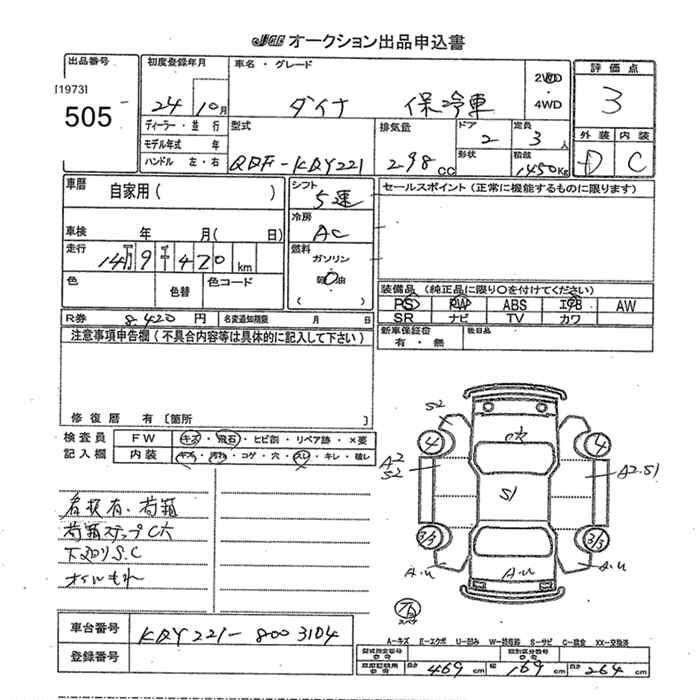 JGC オークション出品申込書
出品番号
[1973]
505
初度登録年月
24 10月
車名・グレード
ダイナ 保冷車
2WD
・
4WD
評価点
3
ディーラー・並行
モデル年式 年
ハンドル 左・右
型式
QDF-KDY221
排気量
2.98 CC
ドア
2
定員
3人
形状
積載
1450Kg
外装 内装
D C
車歴
自家用( )
シフト
5速
セールスポイント(正常に機能するものに限ります)
車検 年 月( 日)
冷房
AC
走行
14万9千420km
燃料
ガソリン
軽油
( )
色 色替 色コード
装備品(純正品に限り○を付けてください)
PS PW ABS エアB AW
SR ナビ TV カワ
R券 8,420円
名変通知期限 月 日
新車保証書
有・無
後日品
注意事項申告欄(不具合内容等は具体的に記入して下さい)
修復歴 有[箇所 ]
検査員 FW キズ・飛石・ヒビ割・リペア跡・×要
記入欄 内装 キズ・汚れ・コゲ・穴・スレ・キレ・破レ
名状有、荷箱
荷箱ステップC穴
下廻りS.C
オイルもれ
S2
4
4
A2
S2
S1
A2.S1
3/3
3/3
A.U
A.U
A.U
スペア
A-キズ E-エクボ U-凹み W-補修跡 S-サビ C-腐食 XX-交換済
車台番号 KDY221-8003104
登録番号
型式指定番号
類別区分番号
長さ 469cm 幅 169cm 高さ 264cm